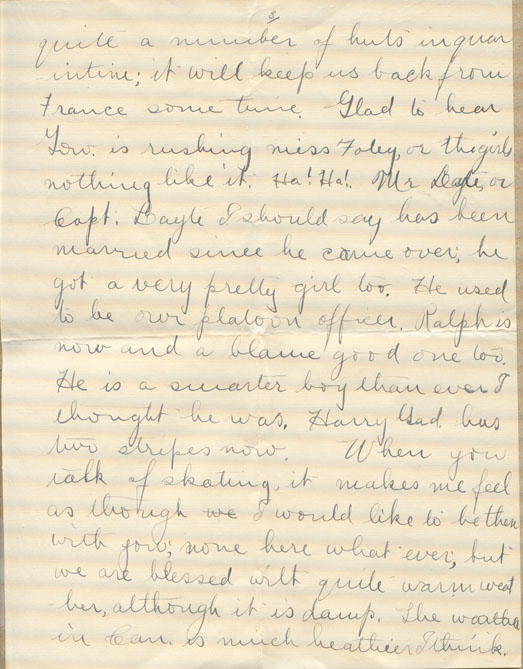 3/
quite a number of huts in quar
intine; it will keep us back from
France some time. Glad to hear
is rushing miss Foley, or the girls
nothing like it. Ha! Ha!. Mr Dayte, or
Capt. Dayte I should say has been
married since he came over; he
got a very pretty girl too. He used
to be our platoon officer. Ralph is
now and a blame good one too.
He is a smarter boy than ever I
thought he was. Harry has
two stripes now. When you
talk of skating, it makes me feel
as though we I would like to be there
with you; none here what ever; but
we are blessed wilt quite warm weat
her, although it is damp. The weather
in Can. is much heathier I think.